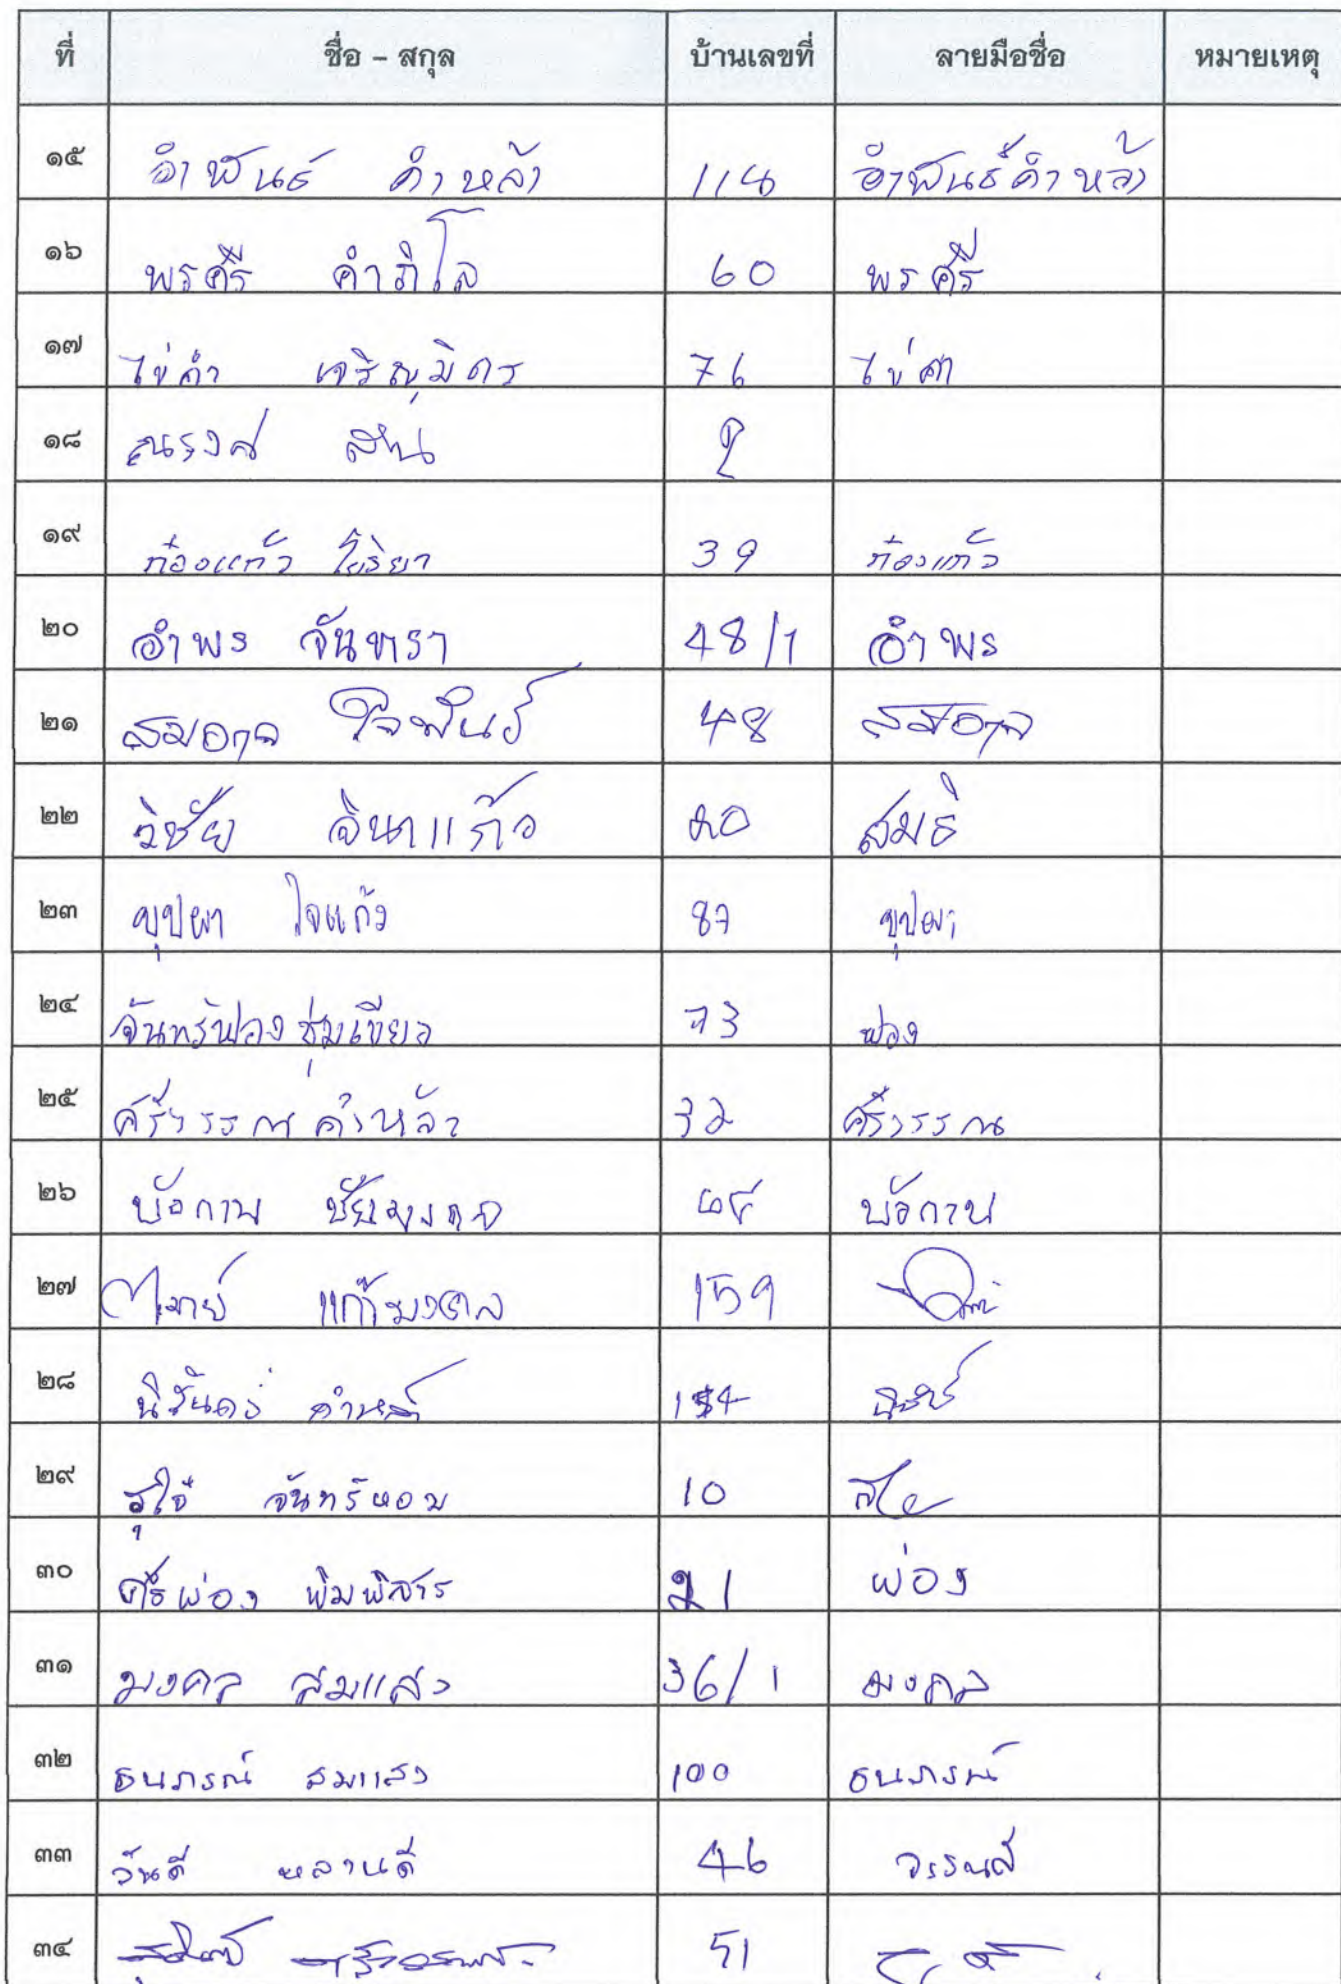 ที่ ชื่อ – สกุล บ้านเลขที่ ลายมือชื่อ หมายเหตุ
๑๕ อำพันธ์ คำหล้า 114 อำพันธ์ คำหล้า
๑๖ พรศรี คำภิโล 60 พรศรี
๑๗ ไข่คำ เจริญมิตร 76 ไข่คำ
๑๘ ณรงค์
๑๙ ก๋องแก้ว ใยริยา 39 ก๋องแก้ว
๒๐ อำพร จันทรา 48/1 อำพร
๒๑ ใจพันธ์ 48
๒๒ วิชัย จินาแก้ว 20
๒๓ บุปผา ใจแก้ว 87 บุปผา
๒๔ จันทร์ฟอง ชุ่มเขียว 73 ฟอง
๒๕ ศรีวรรณ คำหล้า 32 ศรีวรรณ
๒๖ บัวกาบ ชัยมงคล บัวกาบ
๒๗ แก้วมงคล 159
๒๘ นิรันดร์ คำหล้า
๒๙ สุใจ จันทร์หอม 10
๓๐ ศรีผ่อง พิมพิสาร 21 ผ่อง
๓๑ มงคล สมแสง 36/1 มงคล
๓๒ ธนภรณ์ สมแสง 100 ธนภรณ์
๓๓ วันดี หลานดี 46
๓๔ 51